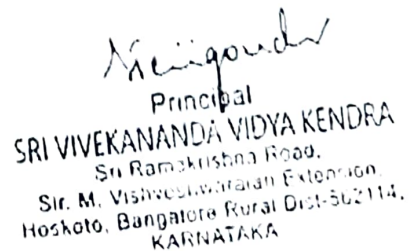 Principal
SRI VIVEKANANDA VIDYA KENDRA
Sri Ramakrishna Road,
Sir. M. Vishveshwaraiah Extension,
Hoskote, Bangalore Rural Dist-562114.
KARNATAKA